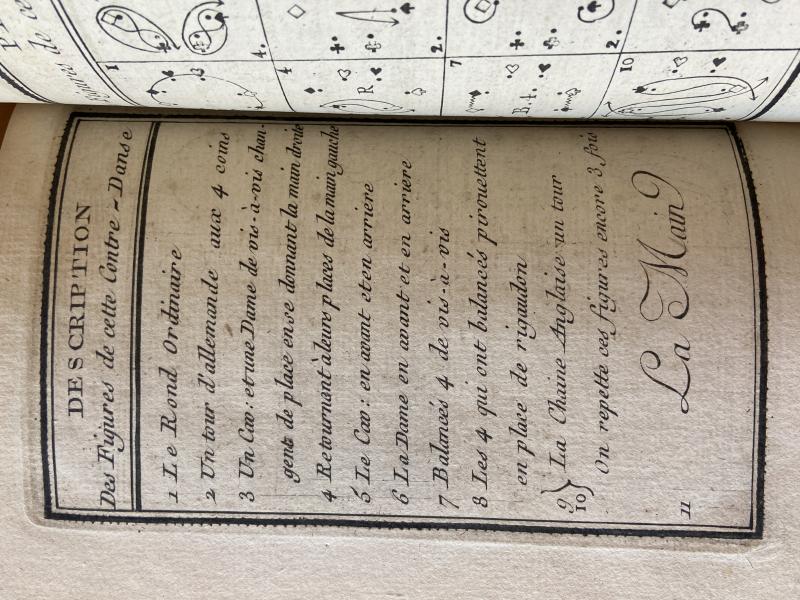 DESCRIPTION
Des Figures de cette Contre-Danse
1 Le Rond Ordinaire
2 Un tour d'allemande aux 4 coins
3 Un Cav: et une Dame de vis-à-vis chan-
gent de place en se donnant la main droite
4 Retournant à leurs places de la main gauche
5 Le Cav: en avant et en arriere
6 La Dame en avant et en arriere
7 Balancés 4 de vis-à-vis
8 Les 4 qui ont balancés pirouettent
en place de rigaudon
9
10 } La Chaine Anglaise un tour
On repette ces figures encore 3 fois
11 La Main
1
4.
4
R
2.
7
B.4.
2.
10